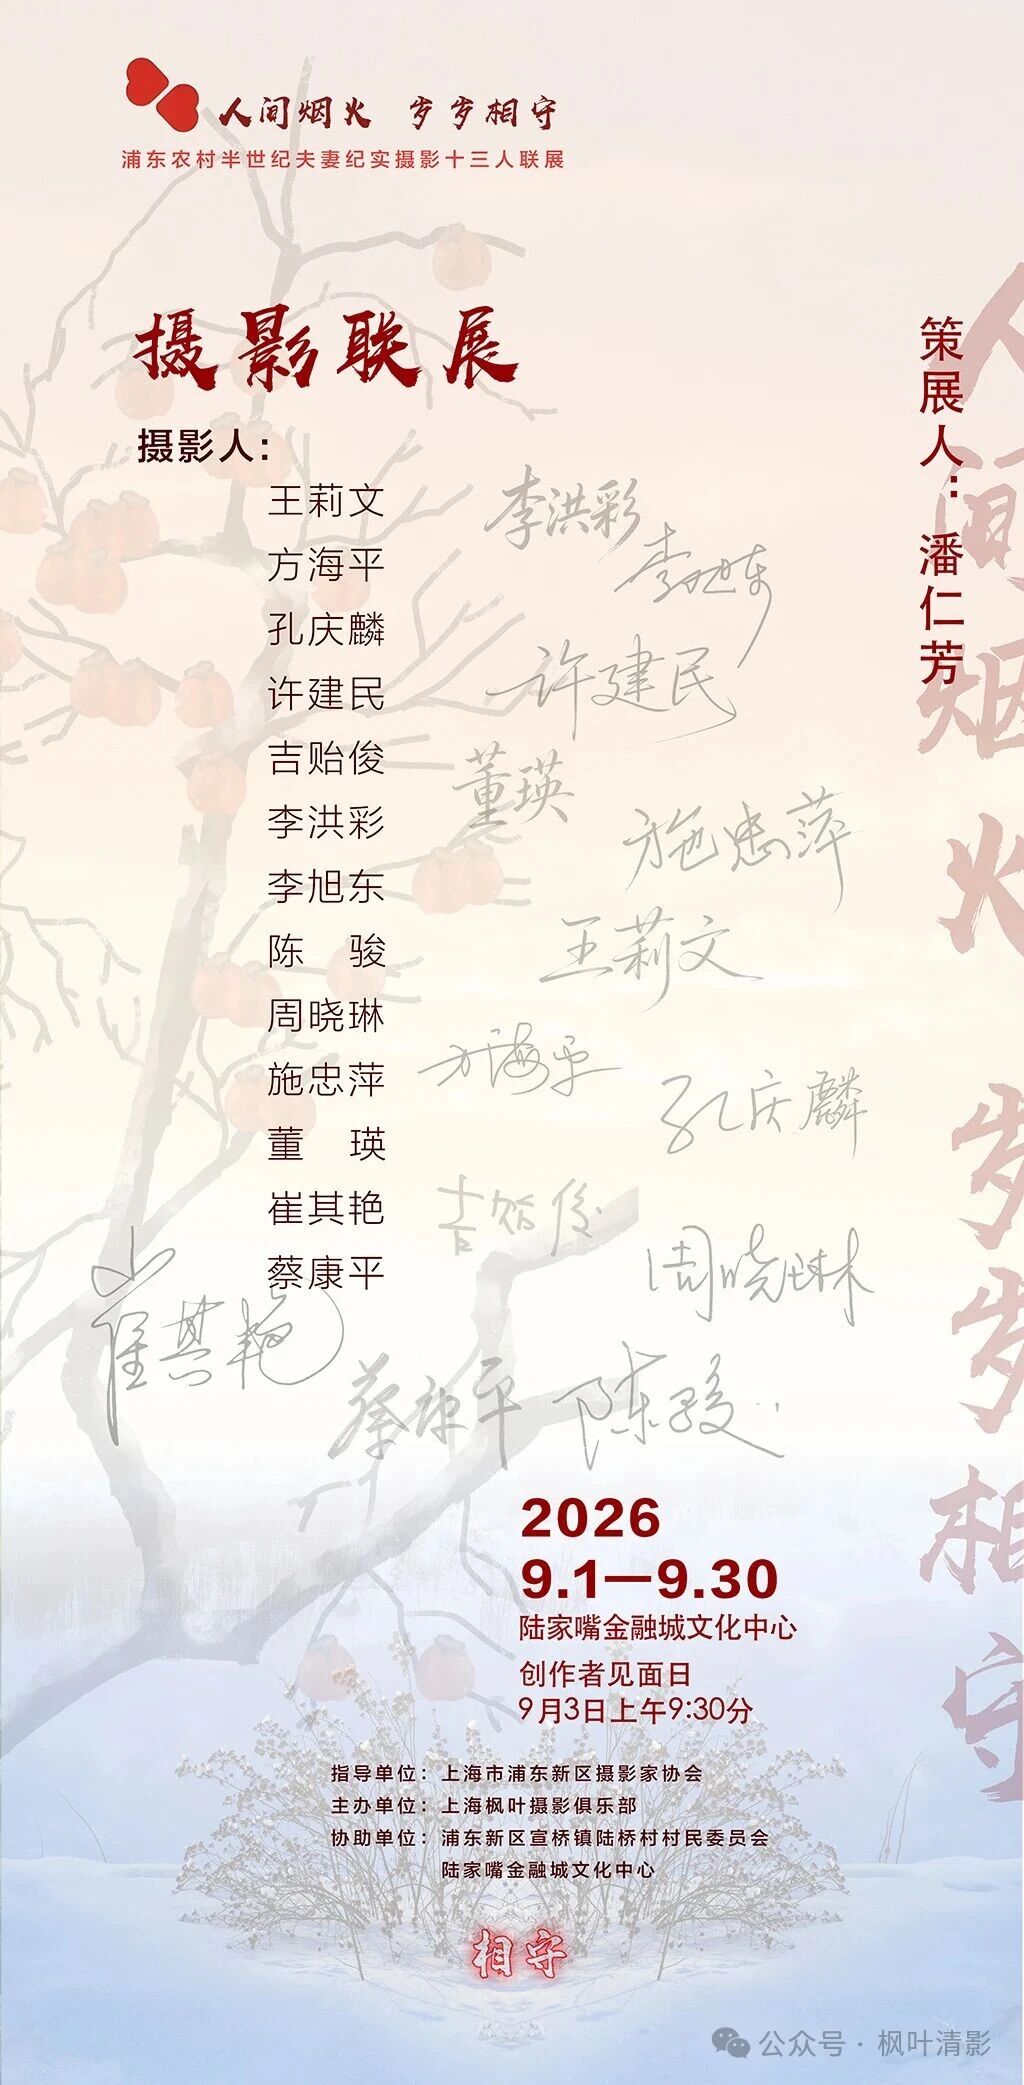 人间烟火 岁岁相守
浦东农村半世纪夫妻纪实摄影十三人联展
摄影联展
摄影人：
王莉文
方海平
孔庆麟
许建民
吉贻俊
李洪彩
李旭东
陈 骏
周晓琳
施忠萍
董 瑛
崔其艳
蔡康平
李洪彩
李旭东
许建民
董瑛
施忠萍
王莉文
方海平
孔庆麟
吉贻俊
周晓琳
崔其艳
蔡康平
陈骏
策展人：潘仁芳
人间烟火 岁岁相守
2026
9.1—9.30
陆家嘴金融城文化中心
创作者见面日
9月3日上午9:30分
指导单位：上海市浦东新区摄影家协会
主办单位：上海枫叶摄影俱乐部
协助单位：浦东新区宣桥镇陆桥村村民委员会
陆家嘴金融城文化中心
相守
公众号 · 枫叶清影